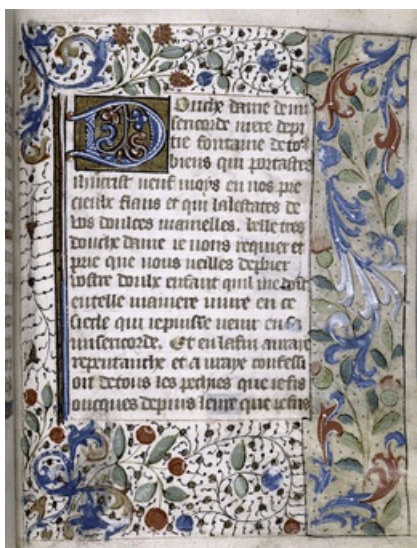 Douche dame de mi
sericorde mere de pi
tie fontaine de tos
biens qui portastes
ihucrist neuf moys en nos pre
cieulx flans et qui lalestates de
vos doulces mamelles. belle tres
doulche dame ie vous requier et
prie que vous veilles deprier
vostre doulx enfant quil me doist
entelle maniere vivre en ce
siecle qui ie puisse venir en sa
misericorde. Et en la fin avraye
repentanche et a vraye confessi
on de tous les pechies que ie fis
oncques depuis leure que ie fus